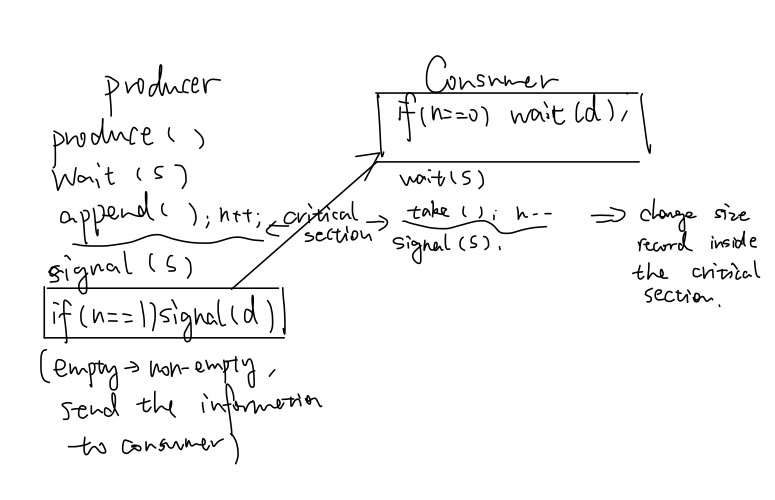 producer
produce ( )
Wait (S)
append( ); n++;
signal (S)
if(n==1)signal(d)
(empty→non-empty,
send the information
to consumer)
critical
section
Consumer
if(n==0) wait(d),
wait(S)
take ( ); n--
signal(S).
⇒ change size
record inside
the critical
section.